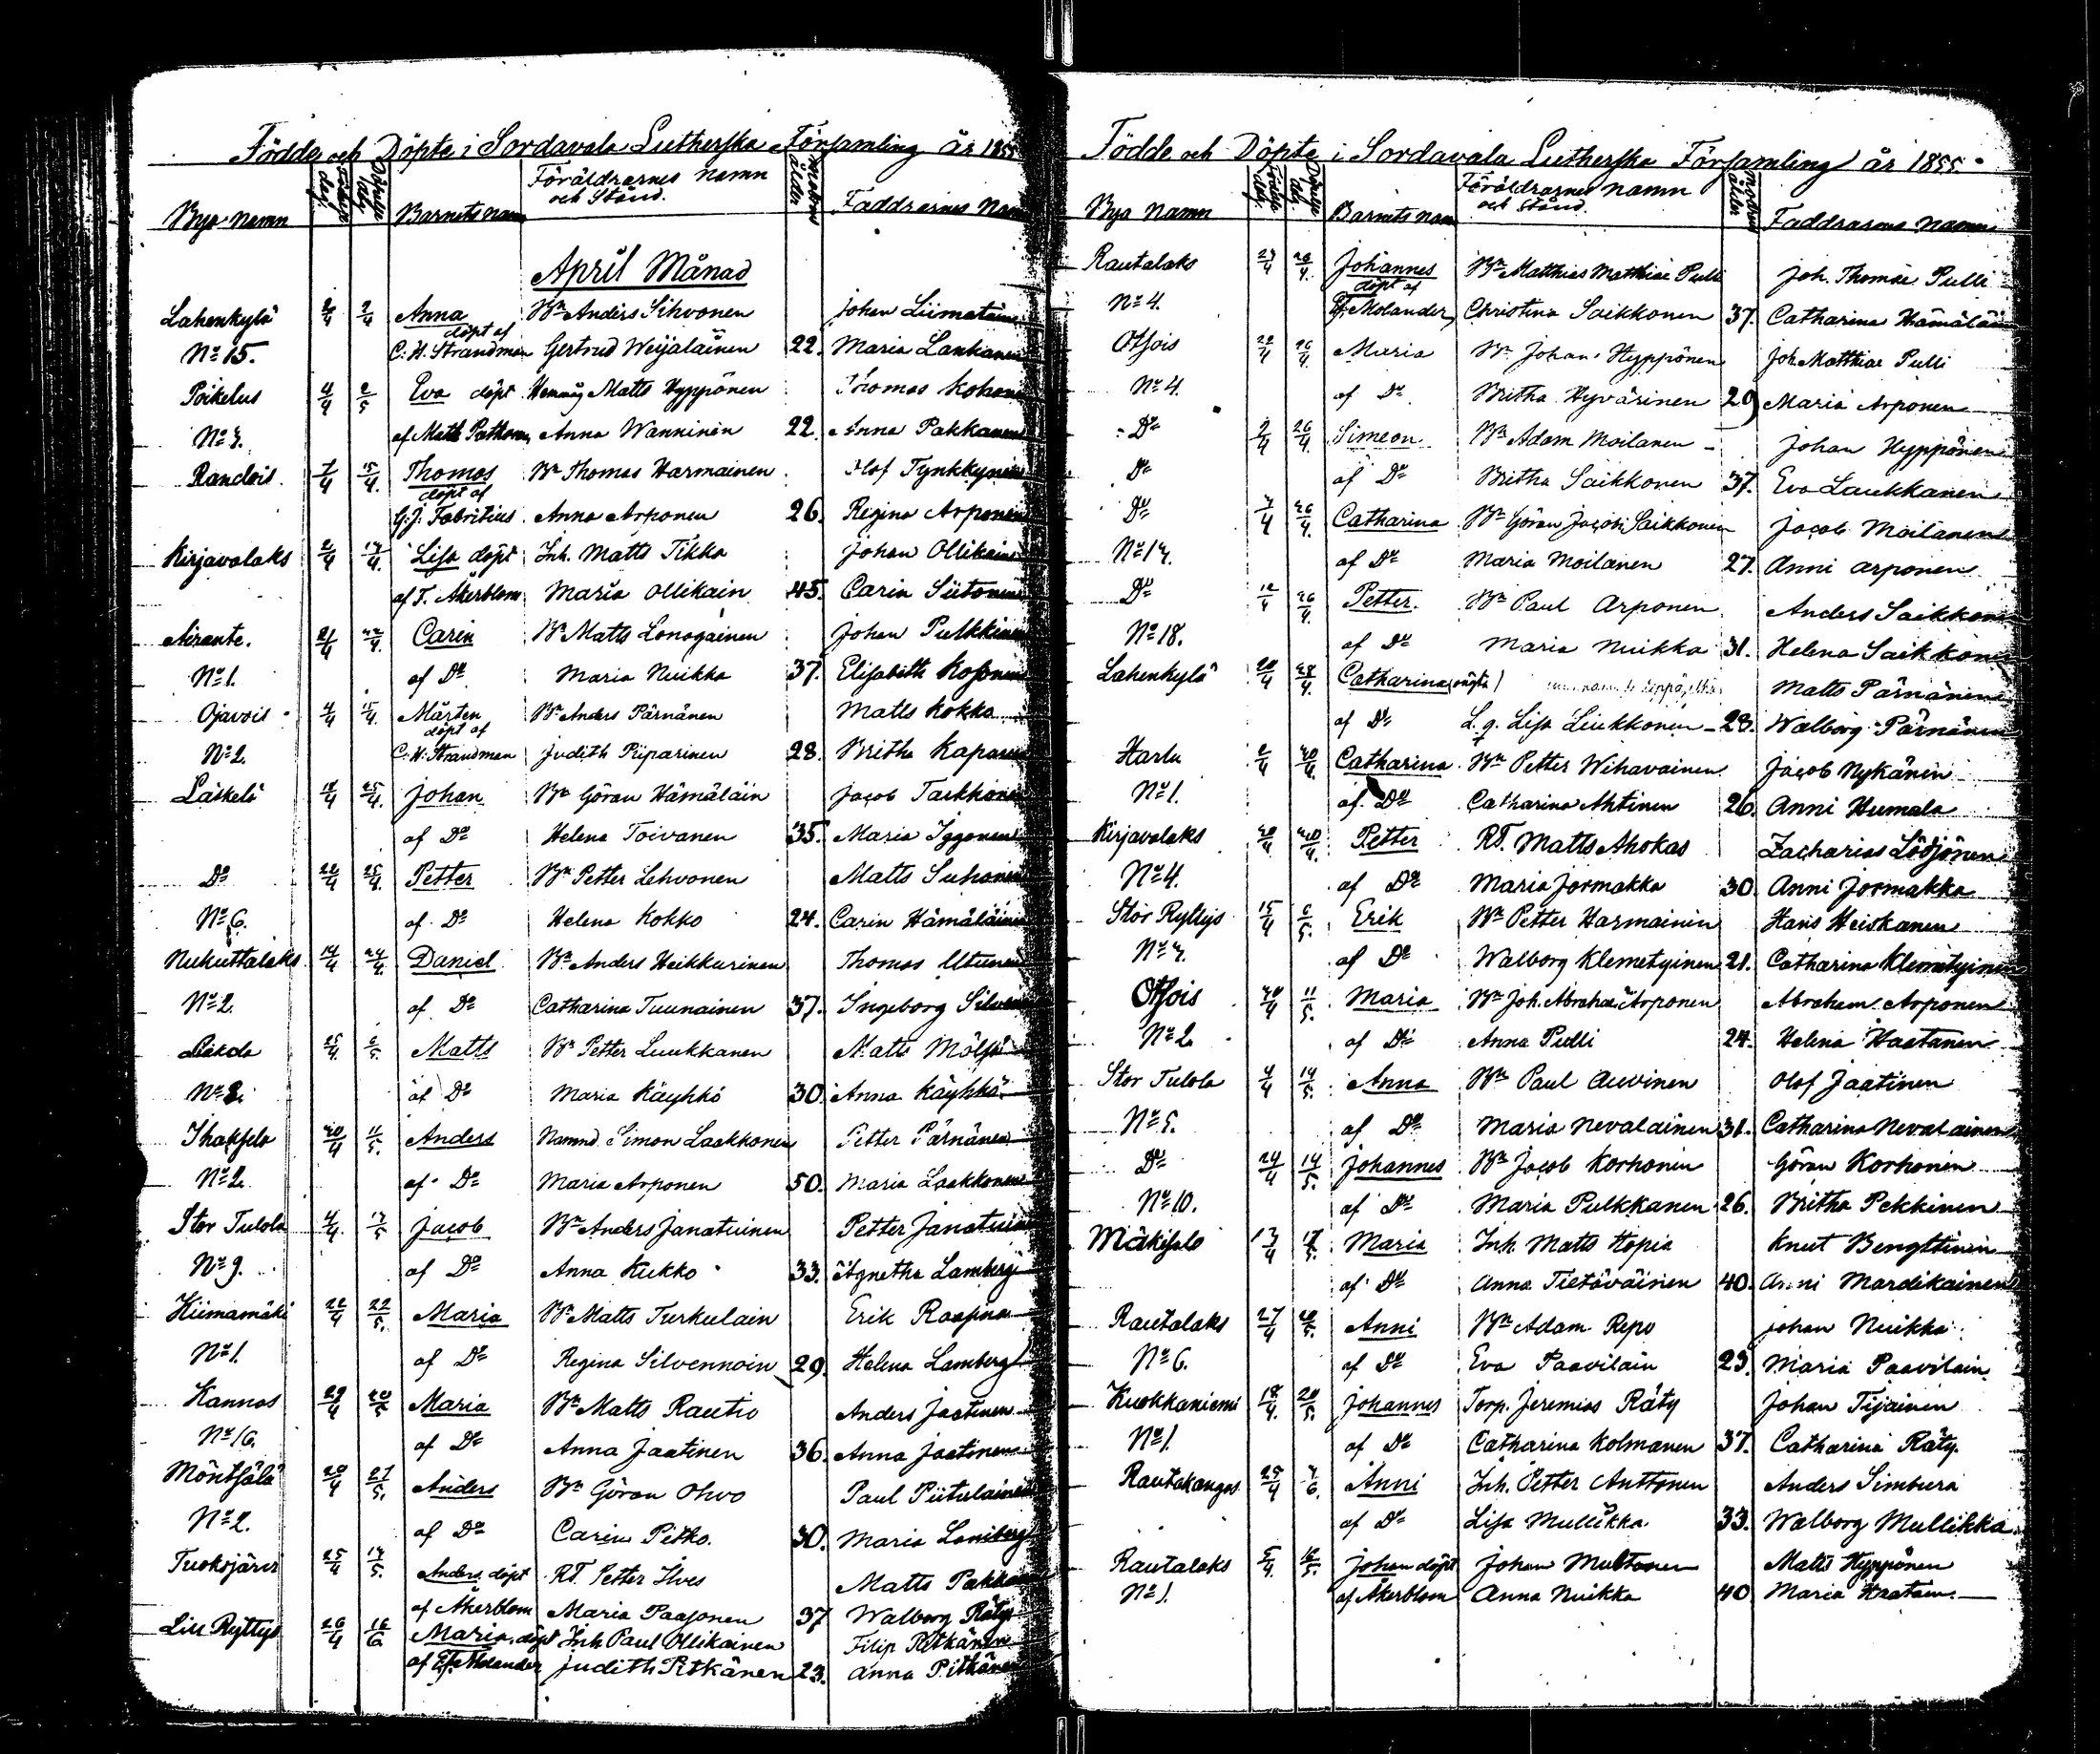 Födde och Döpte i Sordavala Lutherska Församling år 1855
Bya namn Födelse dag Döpelse dag Barnets namn Föräldrarnes namn och Stånd. Modrens ålder Faddrarnes Namn
April Månad
Lahenkylä 2/4 Anna Bn Anders Sihvonen Johan Liimatain
No 15. döpt af C. H. Strandman Gertrud Weijaläinen 22. Maria Lankanen
Poikelus 4/4 2/5 Eva döpt Matts Hyppönen Thomas Kohonen
af Math Anna Wanninen 22. Anna Pakkanen
Randois 7/4 15/4. Thomas Bn Thomas Harmainen Olof Tynkkynen
döpt af G. J. Fabritius. Anna Arponen 26. Regina Arponen
Kirjavalaks Lisa döpt Inh. Matts Tikka Johan Ollikain
af T. Åkerblom Maria Ollikain 45. Carin Siitonen
Airante. Carin Bn Matts Lonogainen Johan Pulkkinen
No 1. af Do Maria Nuikka 37. Elisabeth Kosonen
Ojavois 4/4 15/4. Mårten Bn Anders Pärnänen Matts Kokko
No 2. döpt af C. H. Strandman Judith Piiparinen 28. Britha Kaparin
Läskelä 25/4. Johan Bn Göran Hämäläin Jacob Tarkkonen
af Do Helena Toivanen 35. Maria Iggonen
Do 22/4 25/4. Petter Bn Petter Lehvonen Matts Suhonen
No 6. af Do Helena Kokko 24. Carin Hämäläinen
Nukuttalaks 14/4 24/4 Daniel Bn Anders Heikkurinen Thomas Utunen
No 2. af Do Catharina Tuunainen 37. Ingeborg Silven
25/4. 6/5. Matts Bn Petter Luukkanen Matts Mölsä
af Do Maria Käyhkö 30. Anna Käyhkö
Ihaksela 11/5. Anders Nämnd. Simon Laakkonen Petter Pärnänen
No 2. af Do Maria Arponen 50. Maria Laakkonen
Stor Tulola 4/4. 13/5 Jacob Bn Anders Janatuinen Petter Janatuin
No 9. af Do Anna Kukko 33. Agnetha Lamberg
Kiimamäki 22/4 22/5. Maria Bn Matts Turkulain Erik Raasina
No 1. af Do Regina Silvennoin 29. Helena Lamberg
Kannas 29/4 20/5 Maria Bn Matts Rautio Anders Jaatinen
No 16. af Do Anna Jaatinen 36. Anna Jaatinen
Möntsälä 20/4 27/5. Anders Bn Göran Ohvo Paul Piitulainen
No 2. af Do Carin Pitko. 30. Maria Lamberg
Tuoksjärvi 25/4 13/5. Anders döpt RT. Petter Ilves Matts Pakka
af Åkerblom Maria Paasonen 37 Walborg Räty
Lill Ryttys 26/4 16/6 Maria, döpt Inh Paul Ollikainen Filip Pitkänen
af Molander Judith Pitkänen 23. Anna Pitkänen
Födde och Döpte i Sordavala Lutherska Församling år 1855.
Bya Namn Födelse dag. Döpelse dag. Barnets namn Föräldrarnes namn och stånd. Modrens ålder Faddrarnes Namn
Rautalaks 23/4 26/4. Johannes Bn Matthias Matthiae Pulli Joh. Thomæ Pulli
No 4. döpt af Molander Christina Saikkonen 37. Catharina Hämäläin
Otsois 22/4 26/4. Maria Bn Johan Hyppönen Joh. Matthiae Pulli
No 4. af Do Britha Hyvärinen 29 Maria Arponen
Do 26/4. Simeon Bn Adam Moilanen Johan Hyppönen
Do af Do Britha Saikkonen 37. Eva Laukkanen
Do 26/4. Catharina Bn Göran Jacob: Saikkonen Jacob Moilanen
af Do Maria Moilanen 27. Anni Arponen
Do 12/4 26/4. Petter. Bn Paul Arponen Anders Saikkon
No 18. af Do Maria Nuikka 31. Helena Saikkon
Lahenkylä 20/4 28/4. Catharina (oägta) Matts Pärnänen
af Do L. q. Lisa Liukkonen 28. Walborg Pärnänen
Harlu 2/4 30/4. Catharina Bn Petter Wihavainen Jacob Nykänen
No 1. af Do Catharina Ahtinen 26. Anni Humala
Kirjavalaks Petter RT. Matts Ahokas Zacharias Lödjönen
No 4. af Do Maria Jormakka 30. Anni Jormakka
Stor Ryttys 15/4 6/5. Erik Bn Petter Harmainen Hans Heiskanen
af Do Walborg Klemetyinen 21. Catharina Klemetyinen
Otsois 30/4 11/5. Maria Bn Joh. Abraha: Arponen Abraham Arponen
No 2. af Do Anna Pulli 24. Helena Haatanen
Stor Tulola 4/4 14/5. Anna Bn Paul Auvinen Olof Jaatinen
No 5. af Do Maria Nevalainen 31. Catharina Nevalainen
Do 24/4 14/5. Johannes Bn Jacob Korhonen Göran Korhonen
No 10. af Do Maria Pulkkanen 26. Britha Pekkinen
Mäkisalo 13/4 17/5. Maria Inh. Matts Hopia Knut Bengttinen
af Do Anna Tietäväinen 40. Anni Mardikainen
Rautalaks 27/4 20/5. Anni Bn Adam Repo Johan Nuikka
No 6. af Do Eva Paavilain 23. Maria Paavilain
Kuokkaniemi 18/4. 20/5. Johannes Torp. Jeremias Räty Johan Tijainen
No 1. af Do Catharina Kolmanen 37. Catharina Räty.
Rautakangas 25/4 Anni Inh. Petter Anttonen Anders Simbura
af Do Lisa Mullikka 33. Walborg Mullikka
Rautalaks 5/4. 16/5. Johan döpt Johan Multanen Matts Hyppönen
No 1. af Åkerblom Anna Nuikka 40 Maria Haatain.